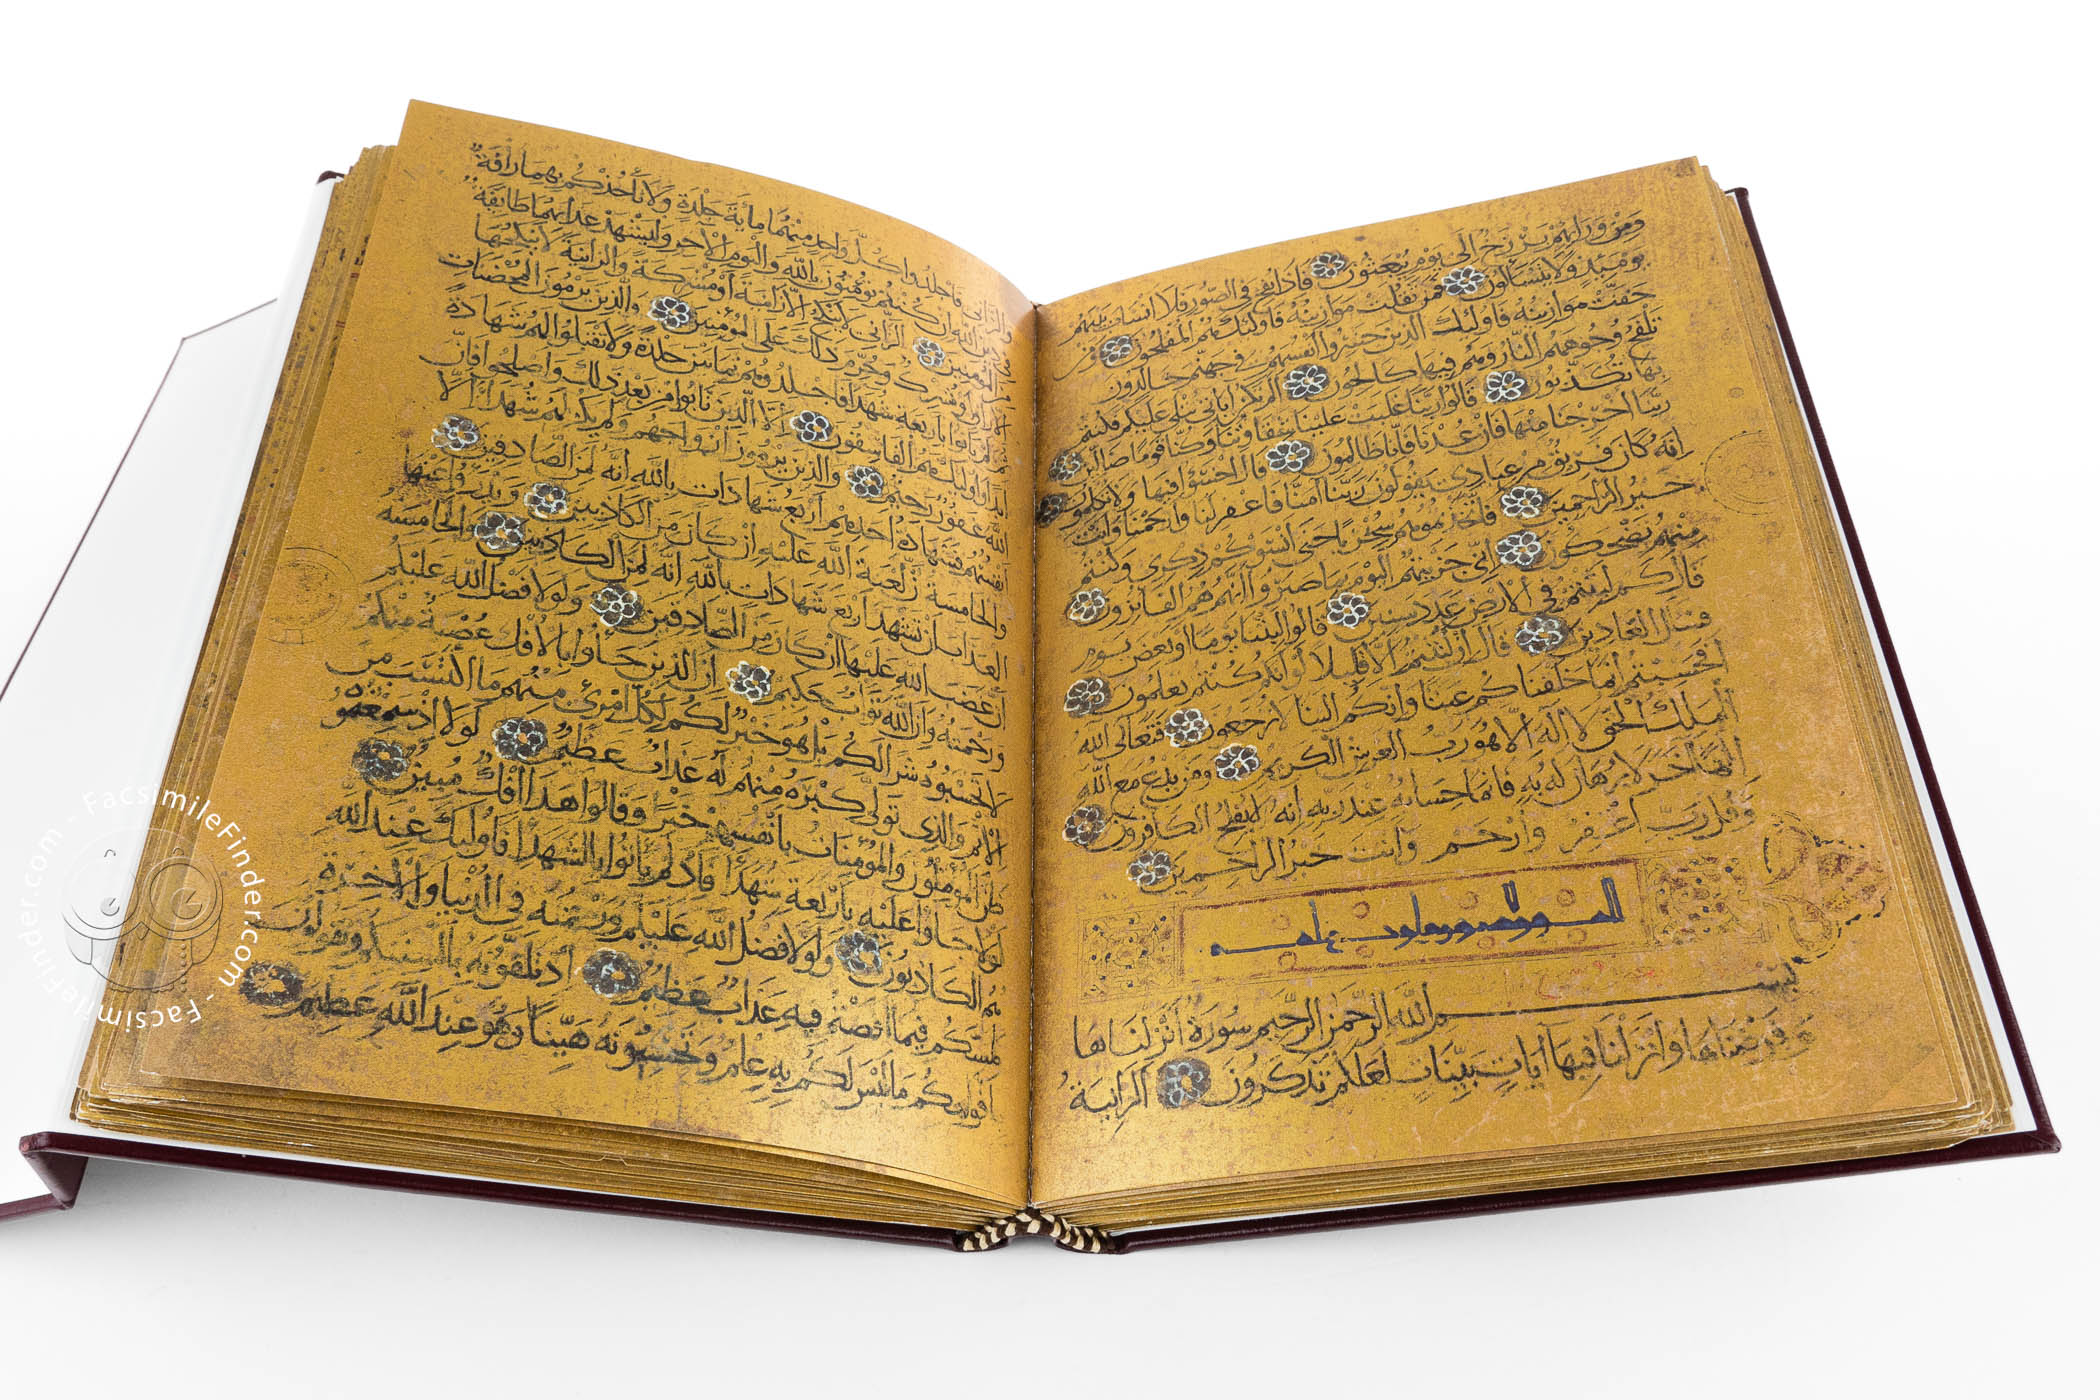 ومن ورائهم برزخ الى يوم يبعثون فاذا نفخ في الصور فلا انساب بينهم
يومئذ ولا يتساءلون فمن ثقلت موازينه فاولئك هم المفلحون ومن
خفت موازينه فاولئك الذين خسروا انفسهم في جهنم خالدون
تلفح وجوههم النار وهم فيها كالحون الم تكن اياتي تتلى عليكم فكنتم
بها تكذبون قالوا ربنا غلبت علينا شقوتنا وكنا قوما ضالين
ربنا اخرجنا منها فان عدنا فانا ظالمون قال اخسئوا فيها ولا تكلمون
انه كان فريق من عبادي يقولون ربنا امنا فاغفر لنا وارحمنا وانت
خير الراحمين فاتخذتموهم سخريا حتى انسوكم ذكري وكنتم
منهم تضحكون اني جزيتهم اليوم بما صبروا انهم هم الفائزون
قال كم لبثتم في الارض عدد سنين قالوا لبثنا يوما او بعض يوم
فسئل العادين قال ان لبثتم الا قليلا لو انكم كنتم تعلمون
افحسبتم انما خلقناكم عبثا وانكم الينا لا ترجعون فتعالى الله
الملك الحق لا اله الا هو رب العرش الكريم ومن يدع مع الله
الها اخر لا برهان له به فانما حسابه عند ربه انه لا يفلح الكافرون
وقل رب اغفر وارحم وانت خير الراحمين
بسم الله الرحمن الرحيم سورة انزلناها
وفرضناها وانزلنا فيها ايات بينات لعلكم تذكرون الزانية
والزاني فاجلدوا كل واحد منهما مائة جلدة ولا تأخذكم بهما رأفة
في دين الله ان كنتم تؤمنون بالله واليوم الاخر وليشهد عذابهما طائفة
من المؤمنين الزاني لا ينكح الا زانية او مشركة والزانية لا ينكحها
الا زان او مشرك وحرم ذلك على المؤمنين والذين يرمون المحصنات
ثم لم يأتوا باربعة شهداء فاجلدوهم ثمانين جلدة ولا تقبلوا لهم شهادة
ابدا واولئك هم الفاسقون الا الذين تابوا من بعد ذلك واصلحوا فان
الله غفور رحيم والذين يرمون ازواجهم ولم يكن لهم شهداء الا
انفسهم فشهادة احدهم اربع شهادات بالله انه لمن الصادقين
والخامسة ان لعنة الله عليه ان كان من الكاذبين ويدرؤا عنها
العذاب ان تشهد اربع شهادات بالله انه لمن الكاذبين والخامسة
ان غضب الله عليها ان كان من الصادقين ولولا فضل الله عليكم
ورحمته وان الله تواب حكيم ان الذين جاؤا بالافك عصبة منكم
لا تحسبوه شرا لكم بل هو خير لكم لكل امرئ منهم ما اكتسب من
الاثم والذي تولى كبره منهم له عذاب عظيم لولا اذ سمعتموه
ظن المؤمنون والمؤمنات بانفسهم خيرا وقالوا هذا افك مبين
لولا جاؤا عليه باربعة شهداء فاذ لم يأتوا بالشهداء فاولئك عند الله
هم الكاذبون ولولا فضل الله عليكم ورحمته في الدنيا والاخرة
لمسكم فيما افضتم فيه عذاب عظيم اذ تلقونه بالسنتكم وتقولون
بافواهكم ما ليس لكم به علم وتحسبونه هينا وهو عند الله عظيم
FacsimileFinder.com - FacsimileFinder.com -